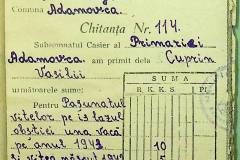 Comuna Adamovca.
Chitanța Nr. 114.
Subsemnatul Casier al Primariei
Adamovca. am primit dela Cuprin
Vasilii
următoarele sume:
SUMA
R.K.K.S Pf.
Pentru Pășunatul
vitelor pe islazul
obștici una vacă
pe anul 1942 10
și vitea născut 1942 5